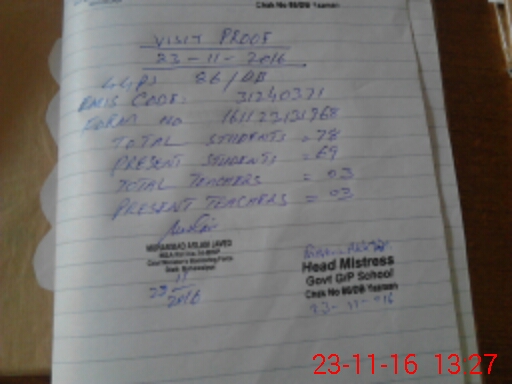 Chak No 86/DB Yazman
VISIT PROOF
23-11-2016
GGPS 86/DB
EMIS CODE: 31240371
FORM NO 161123131968
TOTAL STUDENTS = 78
PRESENT STUDENTS = 69
TOTAL TEACHERS = 03
PRESENT TEACHERS = 03
MUHAMMAD ASLAM JAVED
23/11/2016
Head Mistress
Govt G/P School
Chak No 86/DB Yazman
23-11-016
23-11-16 13:27